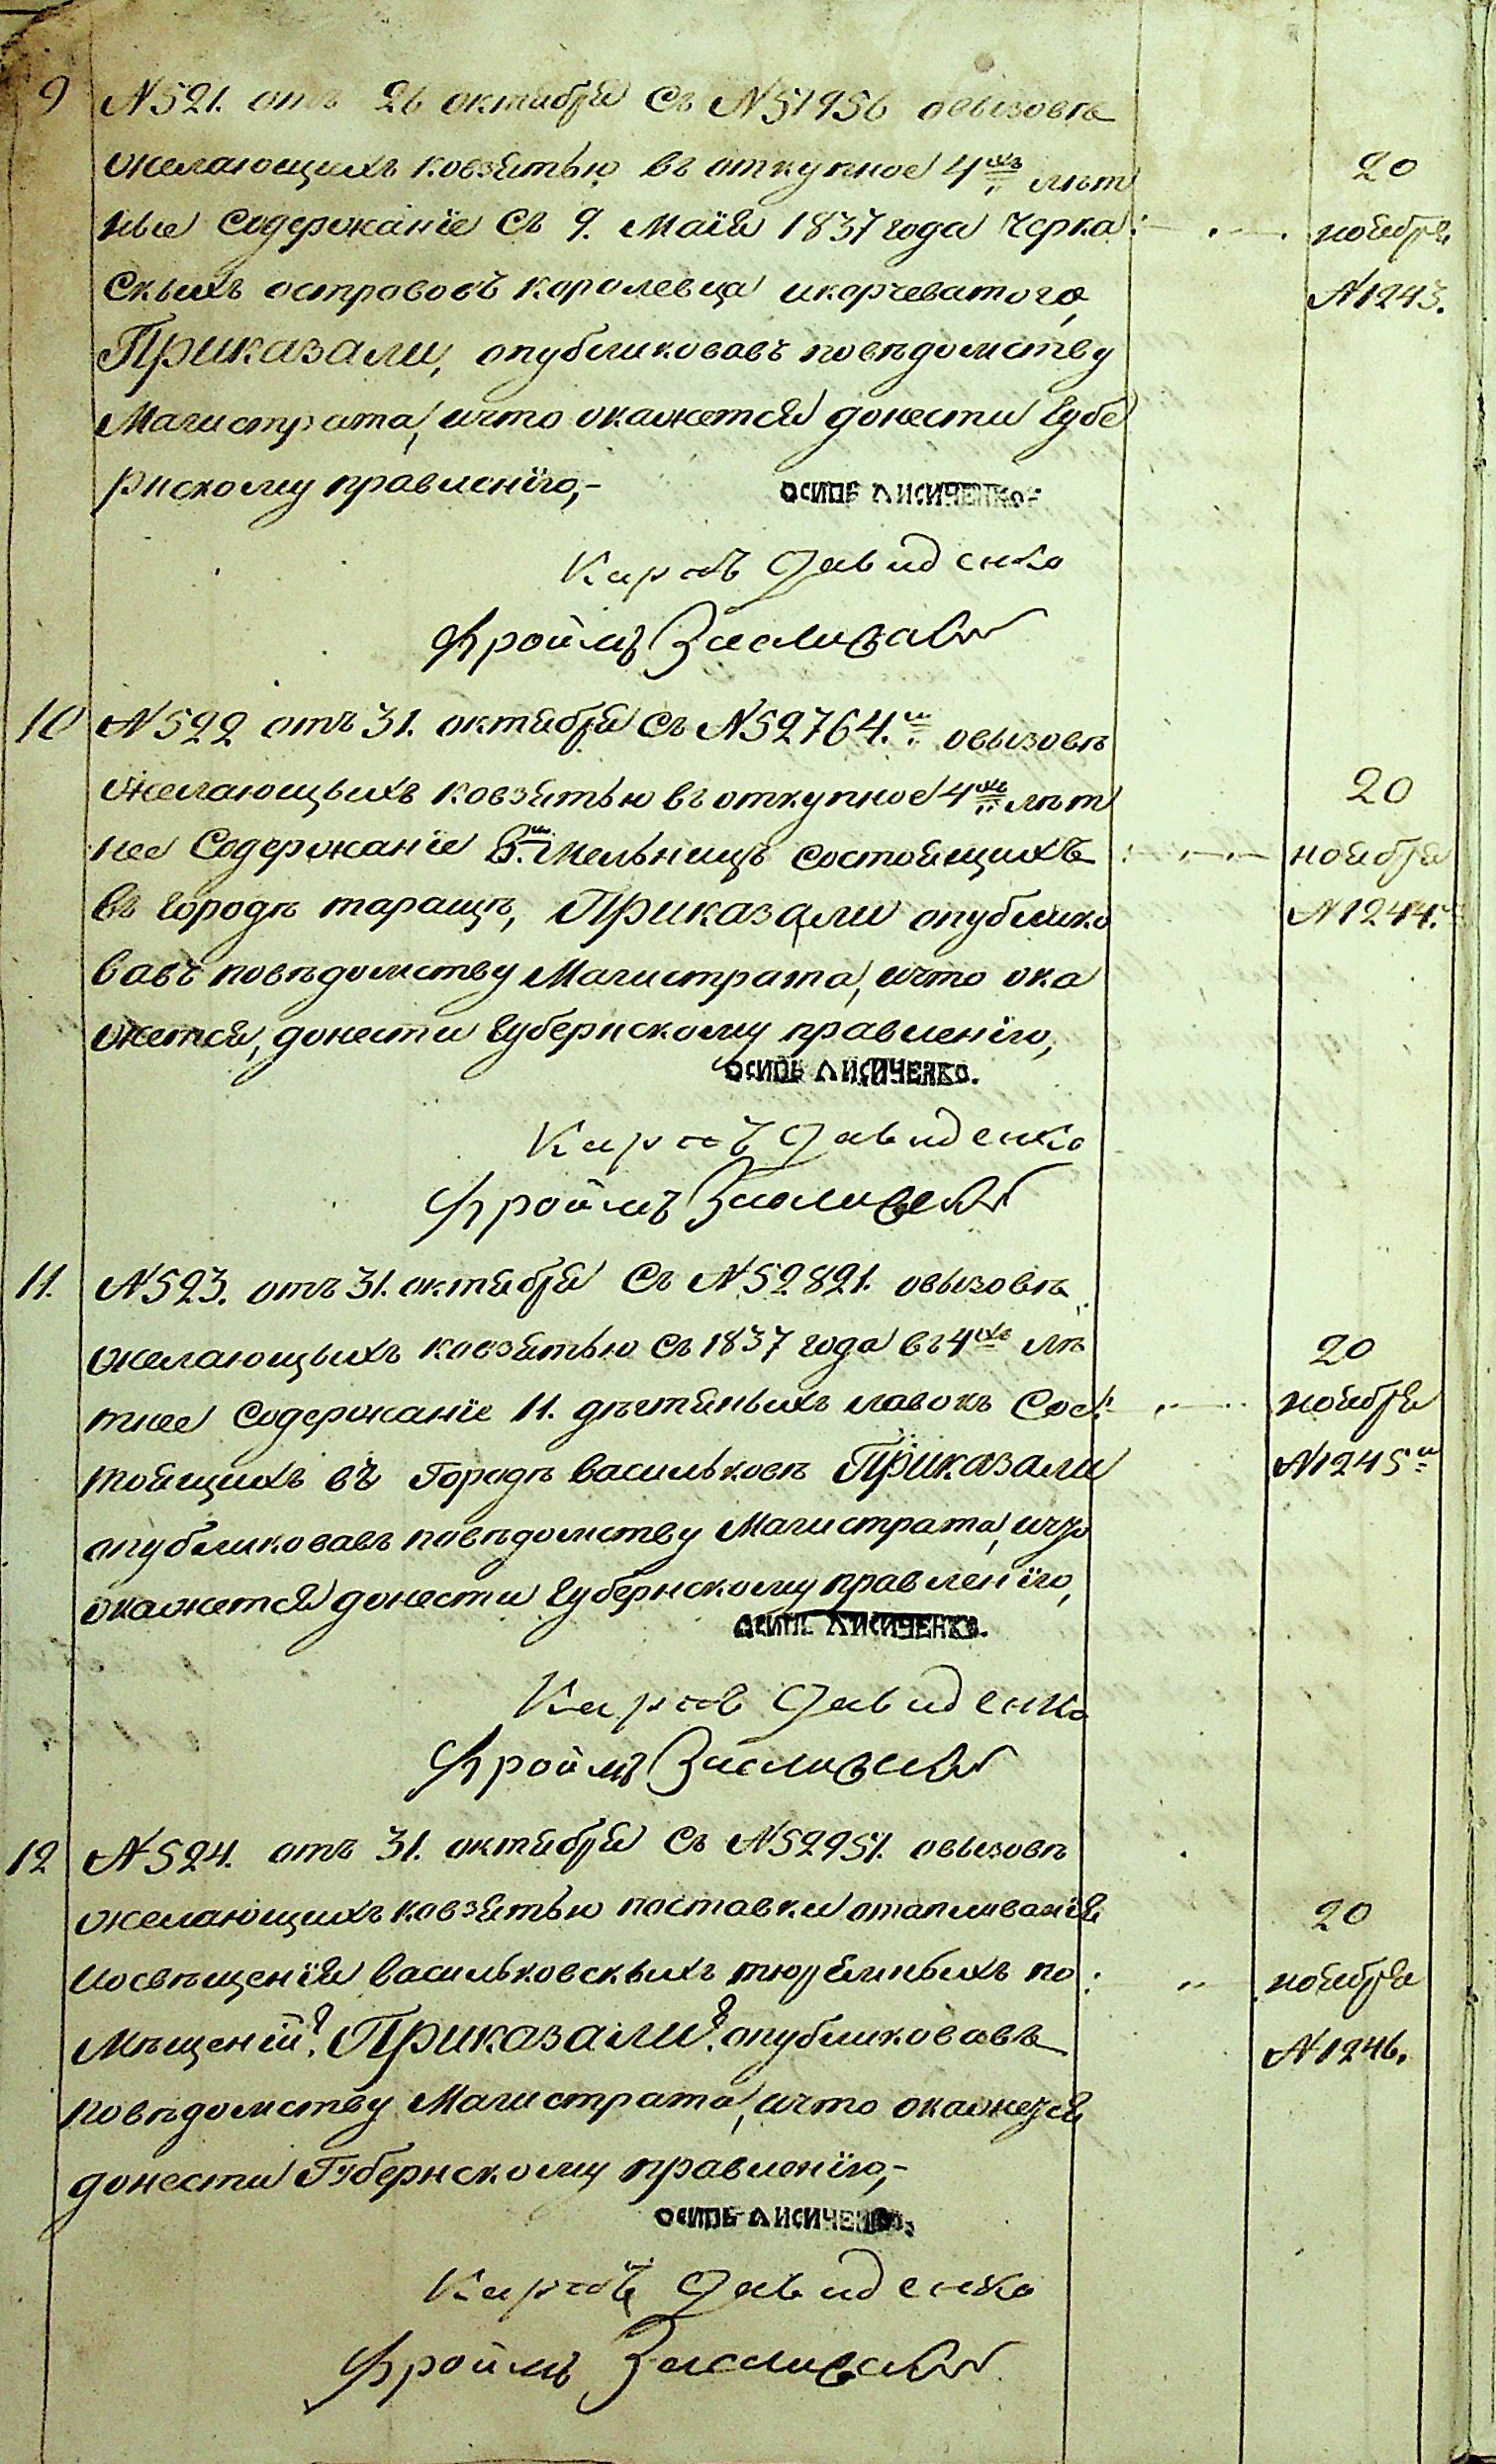 9 №521. отъ 26 октября Съ №51956 овызовѣ
желающихъ ковзятью въ откупное 4хъ лѣт
ные Содержаніе Съ 9. Маія 1837 года Черка
20
ноября
№1243.
Скихъ острововъ королевца икорчеватого,
Приказали, опубликовавъ повѣдомству
Магистрата, ичто окажется донести Губе
рнскому правленію,-
ОСИПЪ ЛИСИЧЕНКО
Карпъ Давиденко
Фроимъ Заславскій
10 №522 отъ 31. октября Съ №52764.м овызовѣ
желающыхъ ковзятью въ откупное 4хъ лѣт
нее Содержаніе мельницъ состоящихъ
20
ноября
№1244.
въ городѣ таращѣ, Приказали опублико
вавъ повѣдомству Магистрата, ичто ока
жется, донести Губернскому правленію,
ОСИПЪ ЛИСИЧЕНКО.
Карпъ Давиденко
Фроимъ Заславскій
11. №523. отъ 31. октября Съ №52821. овызовѣ
желающыхъ ковзятью Съ 1837 года въ 4хъ лѣ
тнее Содержаніе 11. дѣгтяныхъ лавокъ Сос
20
ноября
№1245
тоящихъ въ Городѣ васильковѣ Приказали
опубликовавъ повѣдомству Магистрата, ичто
окажется донести Губернскому правленію,
ОСИПЪ ЛИСИЧЕНКО.
Карпъ Давиденко
Фроимъ Заславскій
12 №524. отъ 31. октября Съ №52951. овызовѣ
желающихъ ковзятью поставки отапливанія
иосвѣщенія васильковскихъ тюремныхъ по
20
ноября
№1246.
мѣщеній. Приказали опубликовавъ
повѣдомству Магистрата, ичто окажется
донести Губернскому правленію,-
ОСИПЪ ЛИСИЧЕНКО.
Карпъ Давиденко
Фроимъ Заславскій